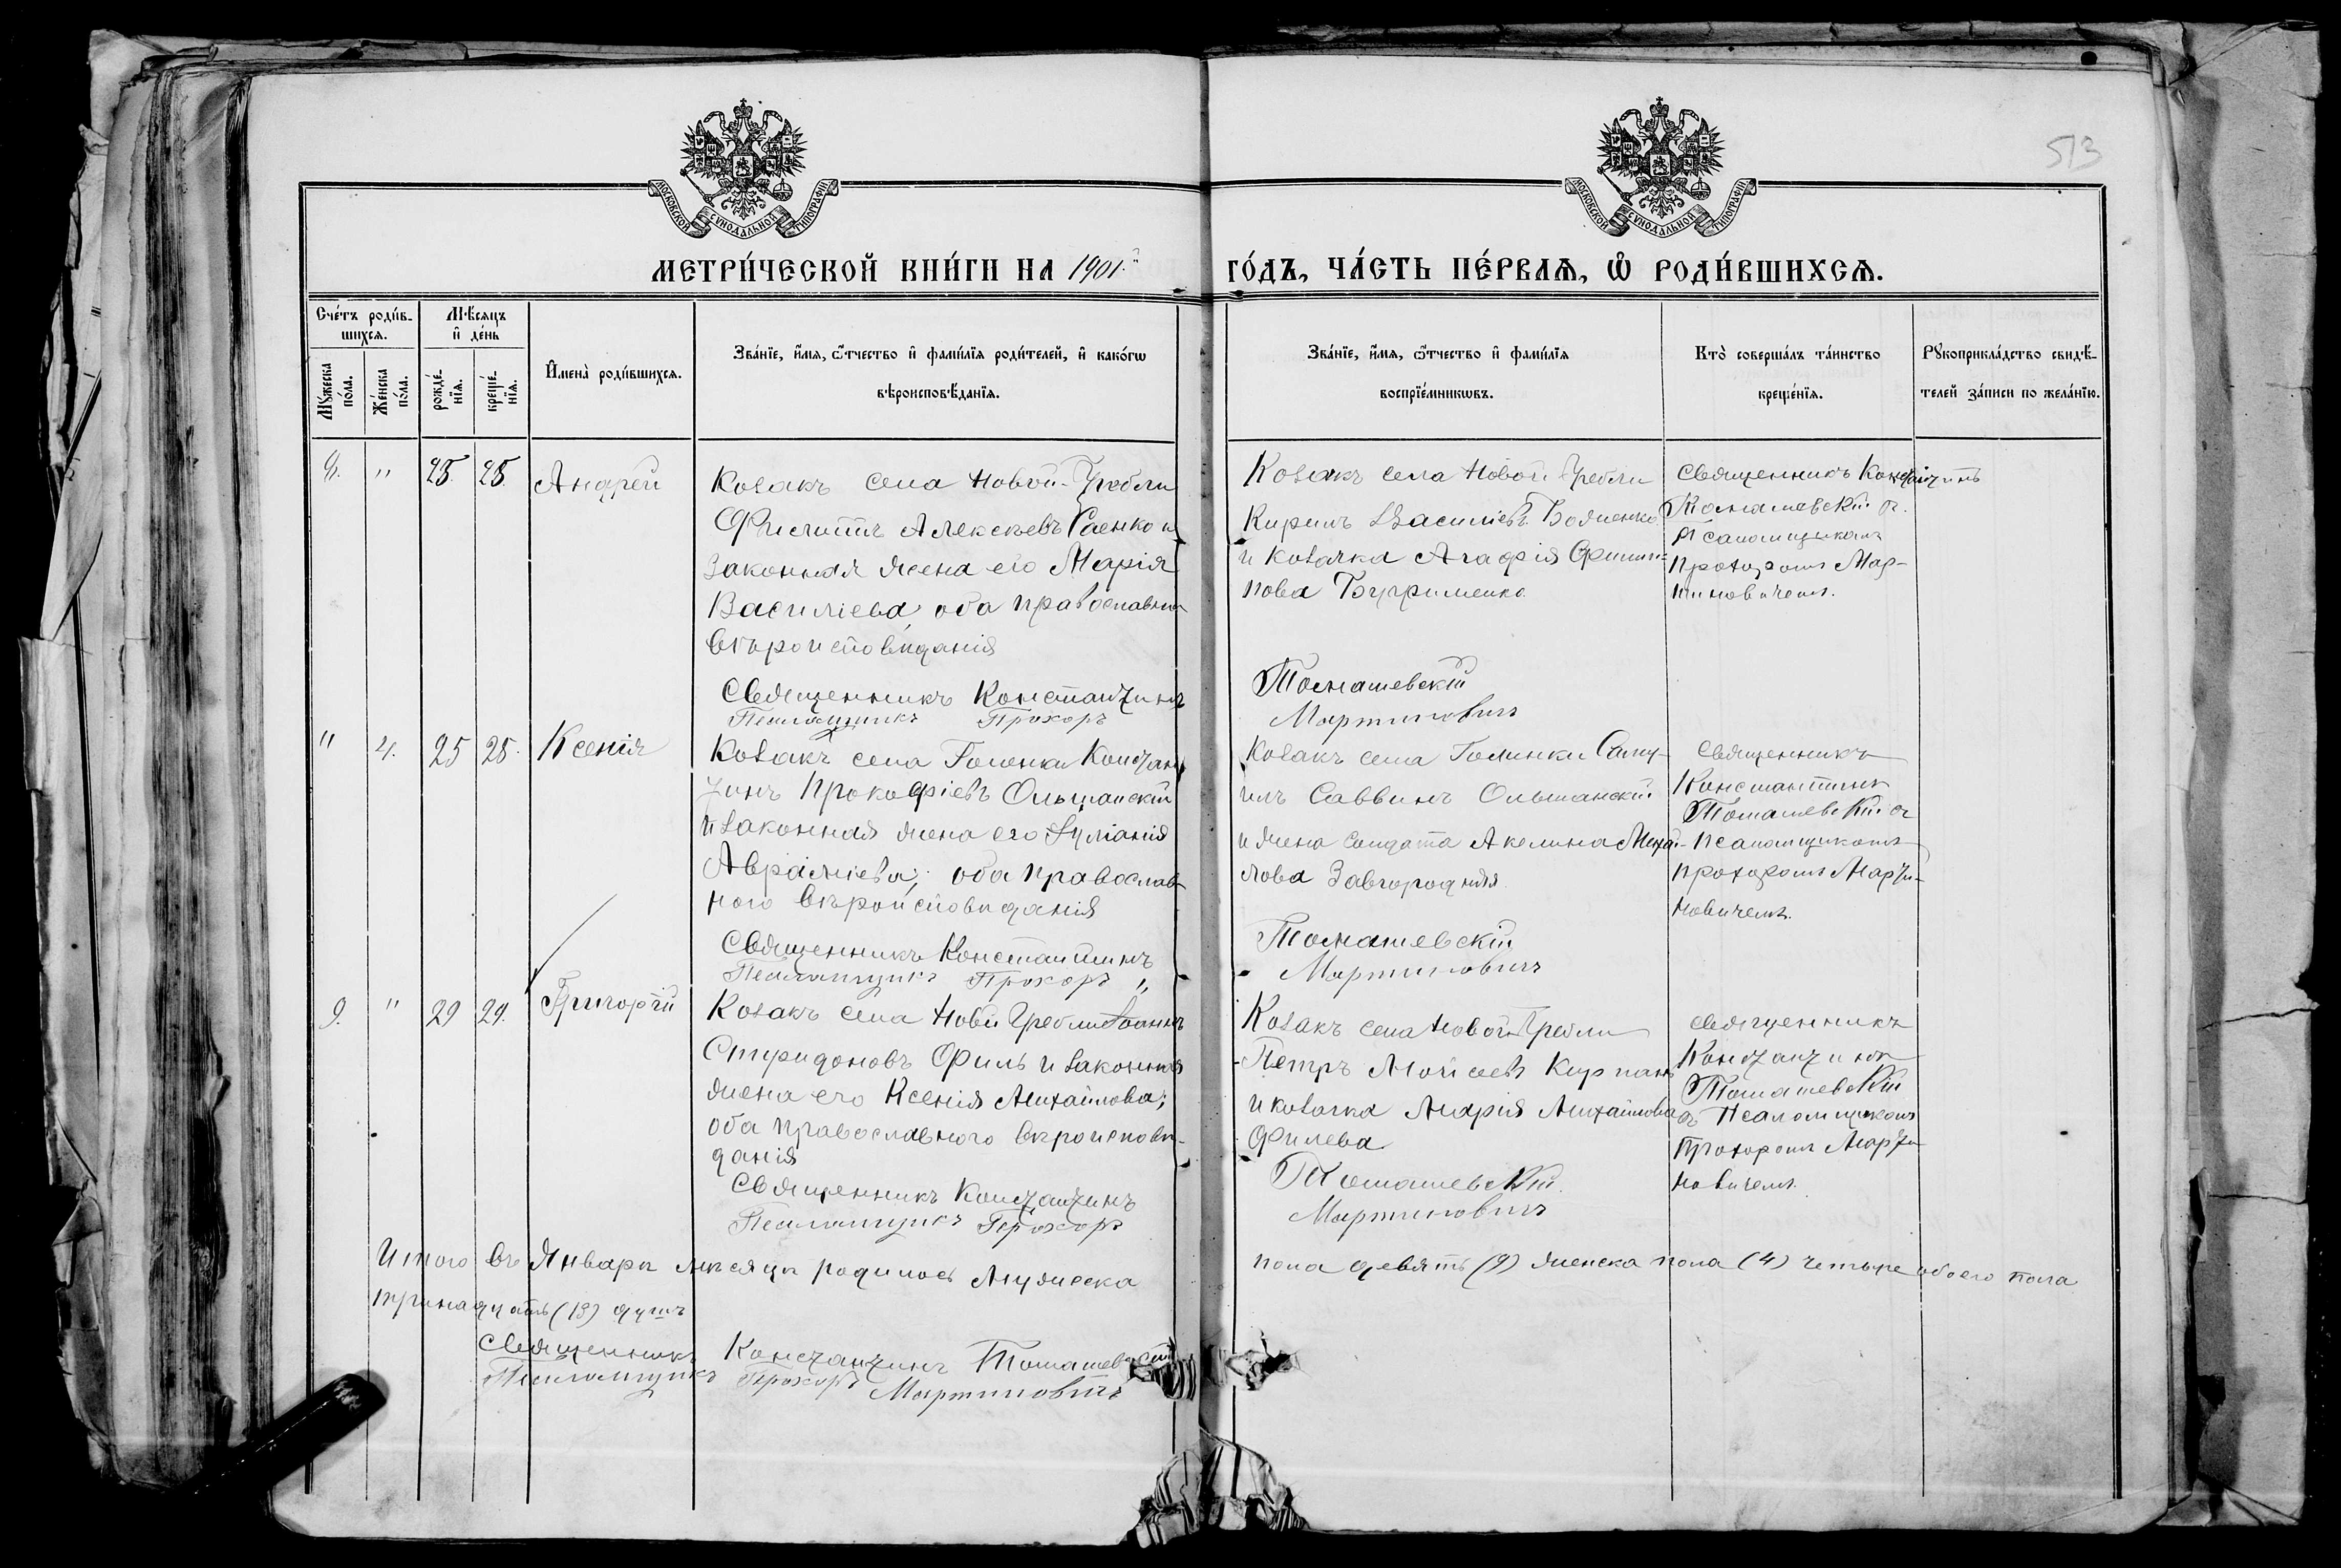 513
МОСКОВСКОЙ СѴНОДАЛЬНОЙ ТИПОГРАФІИ
МОСКОВСКОЙ СѴНОДАЛЬНОЙ ТИПОГРАФІИ
МЕТРИ́ЧЕСКОЙ КНИ́ГИ НА 1901.
ГО́ДЪ, ЧА́СТЬ ПЕ́РВАѦ, Ѡ РОДИ́ВШИХСѦ.
Сче́тъ роди́в-
шихсѧ.
Мѣ́сѧцъ
и де́нь
Мꙋ́жеска
по́ла.
Же́нска
по́ла.
рожде́-
нїѧ.
креще́-
нїѧ.
И҆мена̀ роди́вшихсѧ.
Зва́нїе, и҆́мѧ, ѻ҆́тчество и҆ фами́лїѧ роди́телей, и҆ како́гѡ
вѣроисповѣ́данїѧ.
Зва́нїе, и҆́мѧ, ѻ҆́тчество и҆ фами́лїѧ
воспрїе́мникѡвъ.
Кто̀ соверша́лъ та́инство
креще́нїѧ.
Рꙋкоприкла́дство свидѣ́-
телей за́писи по жела́нїю.
8. " 25. 25. Андрей
Козакъ села Новой-Гребли
Филиппъ Алексѣевъ Гаенко и
законная жена его Марія
Василіева, оба православна
вѣроисповѣданія
Священникъ Константинъ
Псаломщикъ Прохоръ
Козакъ села Новой Гребли
Кирилъ Василіевъ Божненко
и козачка Агафія Филип-
пова Бугрименко
Томашевскій
Мартиновичъ
Священникъ Константинъ
Томашевскій съ
Псаломщикомъ
Прохоромъ Мар-
тиновичемъ.
" 4. 25 25. Ксенія
Козакъ села Голенки Констан-
тинъ Прокофіевъ Ольшанскій
и законная жена его Іуліанія
Авраміева; оба православ-
ного вѣроисповѣданія
Священникъ Константинъ
Псаломщикъ Прохоръ "
Козакъ села Голинки Саму-
илъ Саввинъ Ольшанскій
и жена солдата Акелина Михай-
лова Завгородняя
Томашевскій
Мартиновичъ
Священникъ
Константинъ
Томашевскій съ
Псаломщикомъ
Прохоромъ Марти-
новичемъ.
9. " 29 29. Григорій
Козакъ села Новой Гребли Іоаннъ
Спиридоновъ Филь и законная
жена его Ксенія Михайлова;
оба православного вѣроисповѣ-
данія
Священникъ Константинъ
Псаломщикъ Прохоръ
Козакъ села Новой Гребли
Петръ Мойсеевъ Курпанъ
и козачка Марія Михайлова
Филева
Томашевскій
Мартиновичъ
Священникъ
Константинъ
Томашевскій
съ Псаломщикомъ
Прохоромъ Марти-
новичемъ.
Итого въ Январѣ мѣсяцѣ родилось мужеска
пола девять (9) женска пола (4) четыре обоего пола
тринадцать (13) душъ
Священникъ Константинъ Томашевскій
Псаломщикъ Прохоръ Мартиновичъ